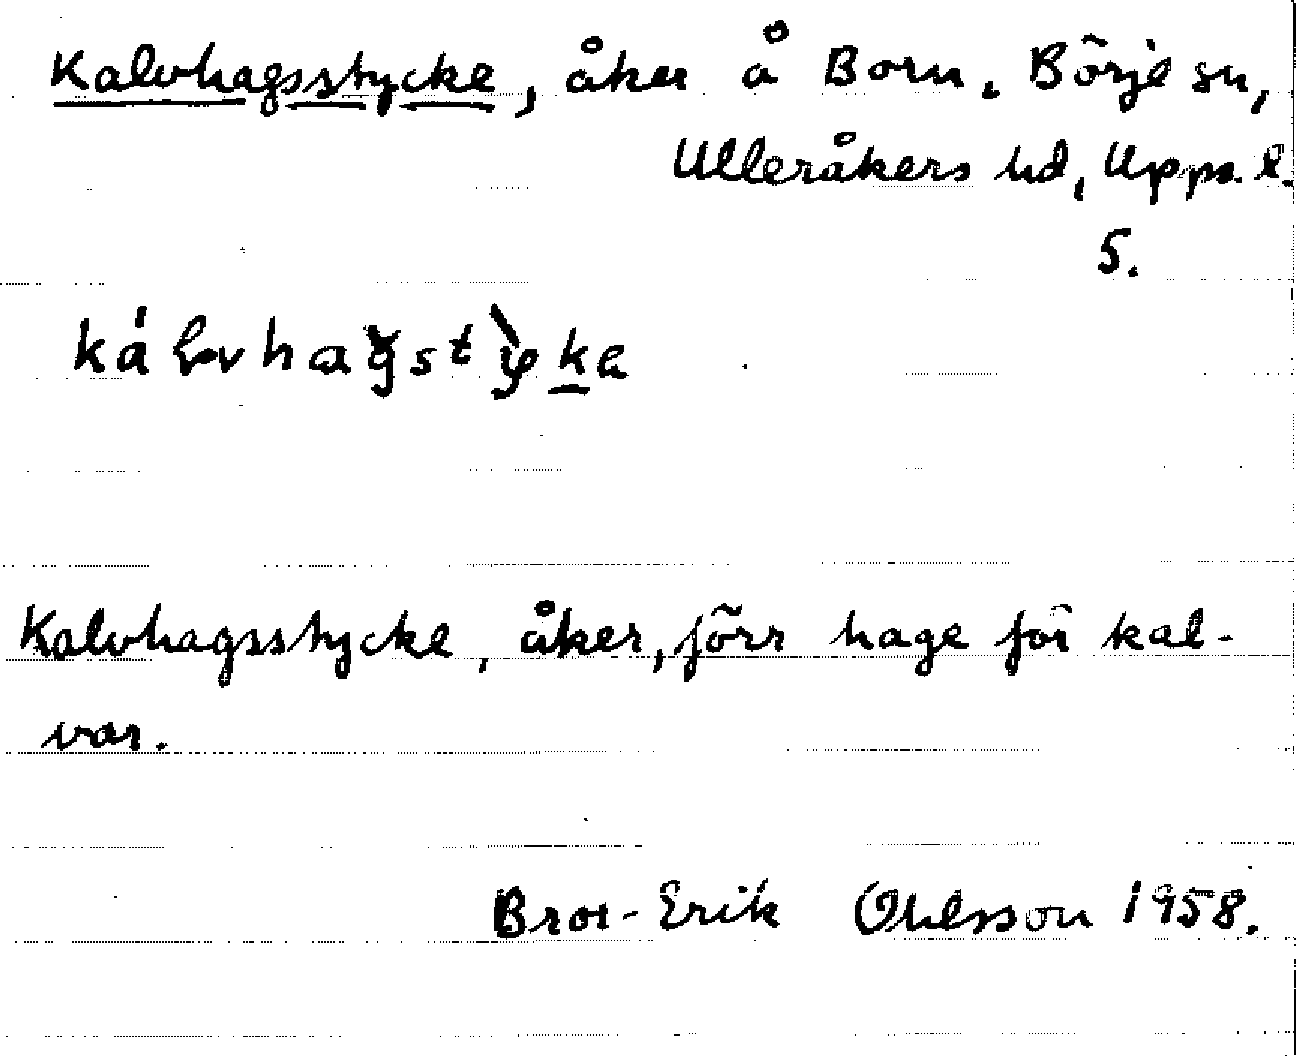 Kalvhagsstycke, åker å Born. Börje sn,
Ulleråkers hd, Upps. l.
5.
Kalvhagsstycke, åker, förr hage för kal-
var.
Bror-Erik Ohlsson 1958.